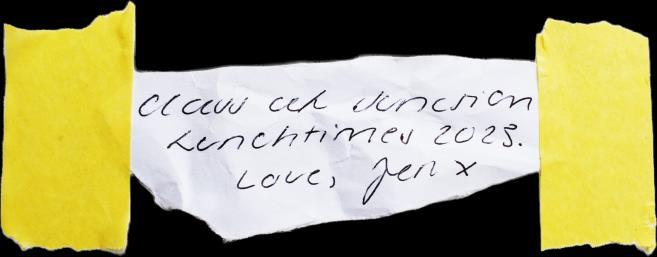 at Junction
Lunchtimes 2023.
Love, Jen x